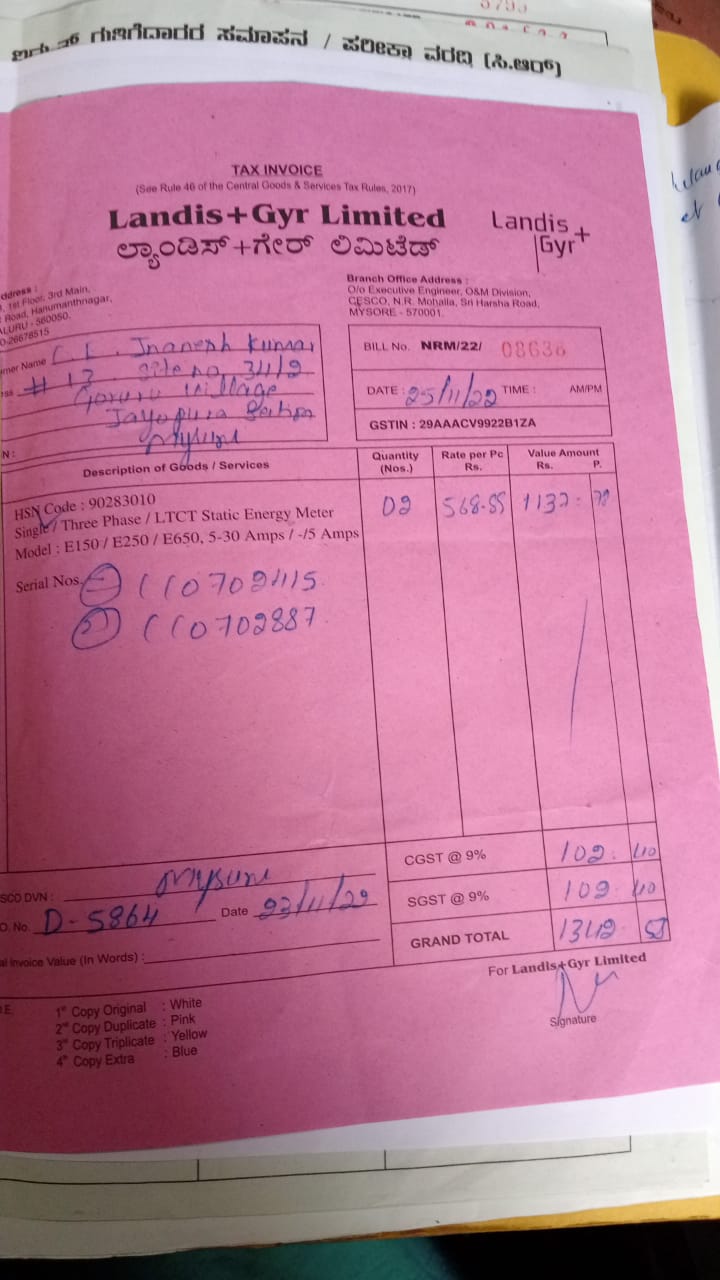 ಗುತ್ತಿಗೆದಾರರ ಸಮಾಪನ / ಪರೀಕ್ಷಾ ವರದಿ (ಸಿ.ಆರ್)
TAX INVOICE
(See Rule 46 of the Central Goods & Services Tax Rules, 2017)
Landis+Gyr Limited
Landis+
Gyr
ಲ್ಯಾಂಡಿಸ್+ಗೇರ್ ಲಿಮಿಟೆಡ್
1st Floor, 3rd Main,
Road, Hanumanthnagar,
560050.
26678515
Branch Office Address :
O/o Executive Engineer, O&M Division,
CESCO, N.R. Mohalla, Sri Harsha Road,
MYSORE - 570001.
Name Jnanesh Kumar
# 13 Site no 34/2
Village
Jayapura Section
Mysure
BILL No. NRM/22/ 08636
DATE : 25/11/22 TIME : AM/PM
GSTIN : 29AAACV9922B1ZA
Description of Goods / Services
Quantity (Nos.)
Rate per Pc Rs.
Value Amount Rs. P.
HSN Code : 90283010
Single / Three Phase / LTCT Static Energy Meter
Model : E150 / E250 / E650, 5-30 Amps / -/5 Amps
02 568.55 1137.
Serial Nos. 1 110702415
2 110702887
CGST @ 9% 102. 40
SGST @ 9% 102. 40
GRAND TOTAL 1342
DVN : Mysure
No. D-5864 Date 23/11/22
Invoice Value (In Words) :
For Landis+Gyr Limited
Signature
1st Copy Original : White
2nd Copy Duplicate : Pink
3rd Copy Triplicate : Yellow
4th Copy Extra : Blue